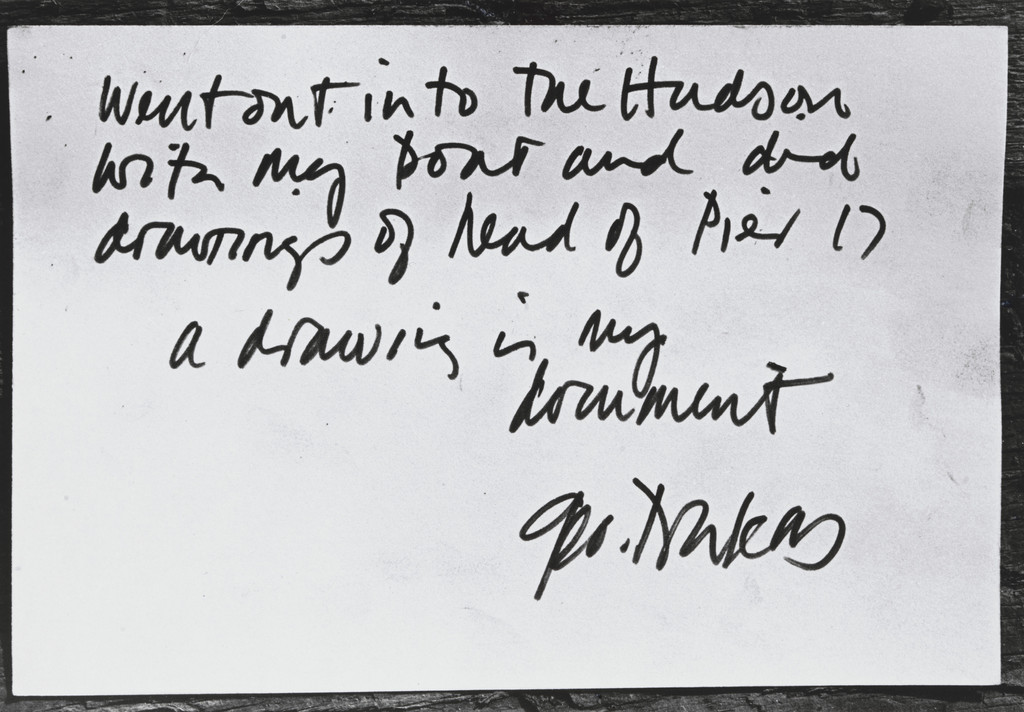 Went out into the Hudson
with my boat and did
drawings of head of Pier 17
a drawing is my
document
Geo. Trakas